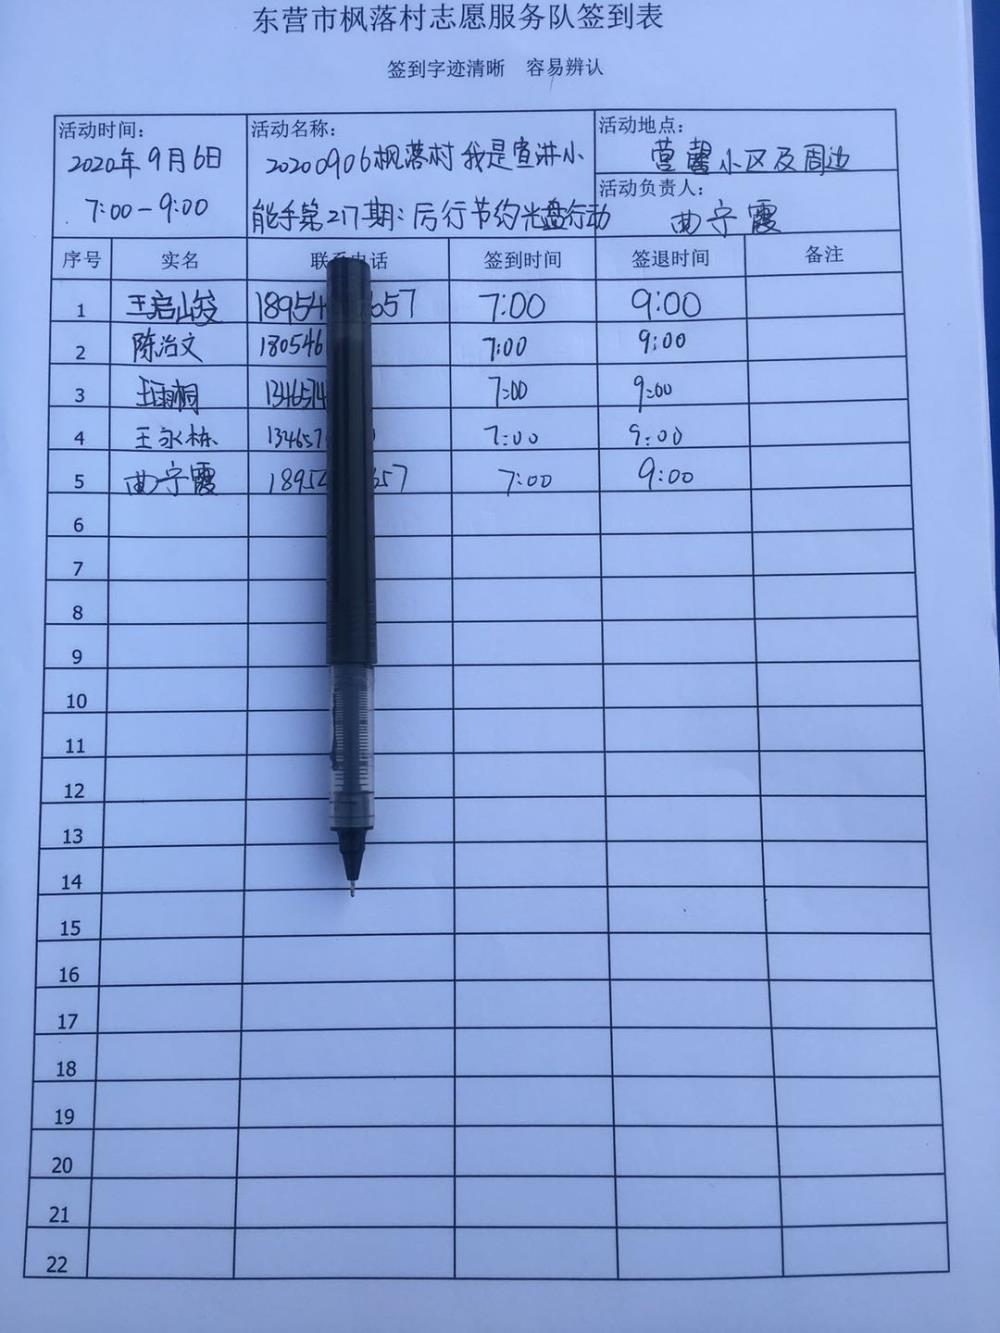 东营市枫落村志愿服务队签到表
签到字迹清晰 容易辨认
活动时间:
2020年9月6日
7:00-9:00
活动名称:
20200906枫落村我是宣讲小
能手第217期:厉行节约光盘行动
活动地点:
营馨小区及周边
活动负责人:
曲宁霞
序号 实名 联系电话 签到时间 签退时间 备注
1 王启山 18954 657 7:00 9:00
2 陈治文 180546 7:00 9:00
3 王雨桐 1346574 7:00 9:00
4 王永栋 134657 7:00 9:00
5 曲宁霞 18954 657 7:00 9:00
6
7
8
9
10
11
12
13
14
15
16
17
18
19
20
21
22